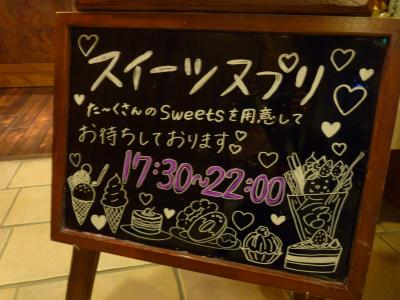 スイーツヌプリ
た〜くさんのSweetsを用意して
お待ちしております♡
17:30〜22:00